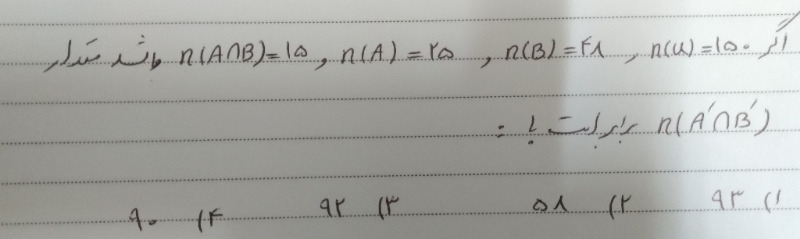 اگر n(u)=۱۵۰ , n(B)=۴۸ , n(A)=۲۵ , n(A∩B)=۱۵ باشد مقدار
n(A′∩B′) برابر است با :
۱) ۹۳ ۲) ۵۸ ۳) ۹۲ ۴) ۹۰